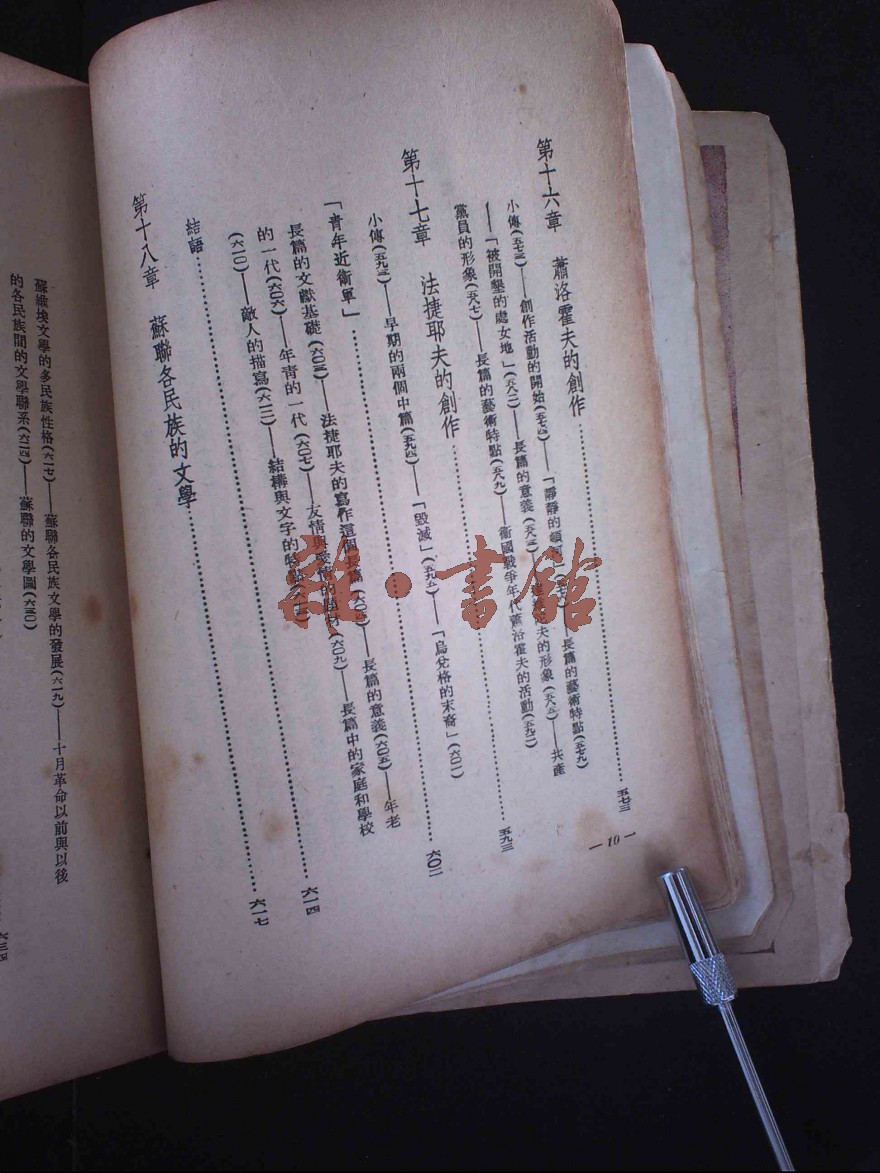 第十六章　蕭洛霍夫的創作……五七三
小傳(五七三)——創作活動的開始(五七四)——「靜靜的頓河」——長篇的藝術特點(五七九)
——「被開墾的處女地」(五八二)——長篇的意義(五八三)——夫的形象(五八五)——共產
黨員的形象(五八七)——長篇的藝術特點(五八九)——衞國戰爭年代蕭洛霍夫的活動(五九一)……五九三
第十七章　法捷耶夫的創作
小傳(五九三)——早期的兩個中篇(五九四)——「毀滅」(五九五)——「烏兌格的末裔」(六〇一)
「青年近衞軍」……六〇二
長篇的文獻基礎(六〇三)——法捷耶夫的寫作這個長篇(六〇四)——長篇的意義(六〇五)——年老
的一代(六〇六)——年青的一代(六〇七)——友情與(六〇九)——長篇中的家庭和學校
(六一〇)——敵人的描寫(六一二)——結構與文字的
結語……六一四
第十八章　蘇聯各民族的文學……六一七
蘇維埃文學的多民族性格(六一七)——蘇聯各民族文學的發展(六一九)——十月革命以前與以後
的各民族間的文學聯系(六二四)——蘇聯的文學圖(六三〇)
— 10 —
雜·書館